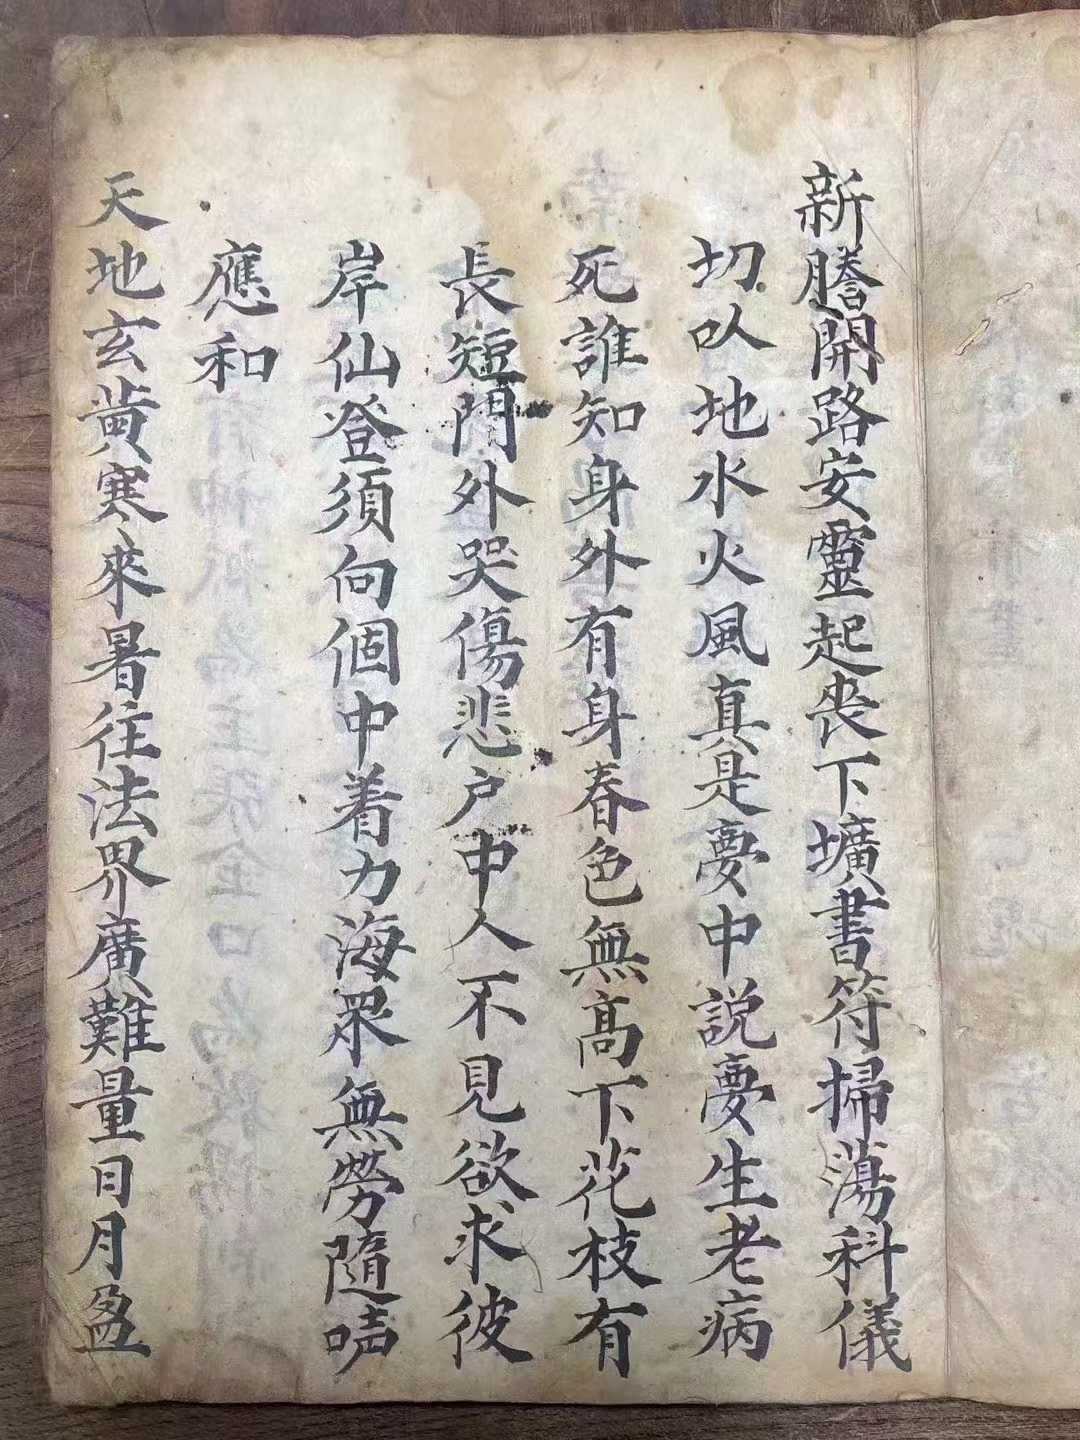 新謄開路安靈起丧下壙書符掃蕩科儀
切以地水火風真是夢中説夢生老病
死誰知身外有身春色無高下花枝有
長短門外哭傷悲户中人不見欲求彼
岸仙登須向個中着力海眾無勞隨唔
應和
天地玄黄寒來暑往法界廣難量日月盈